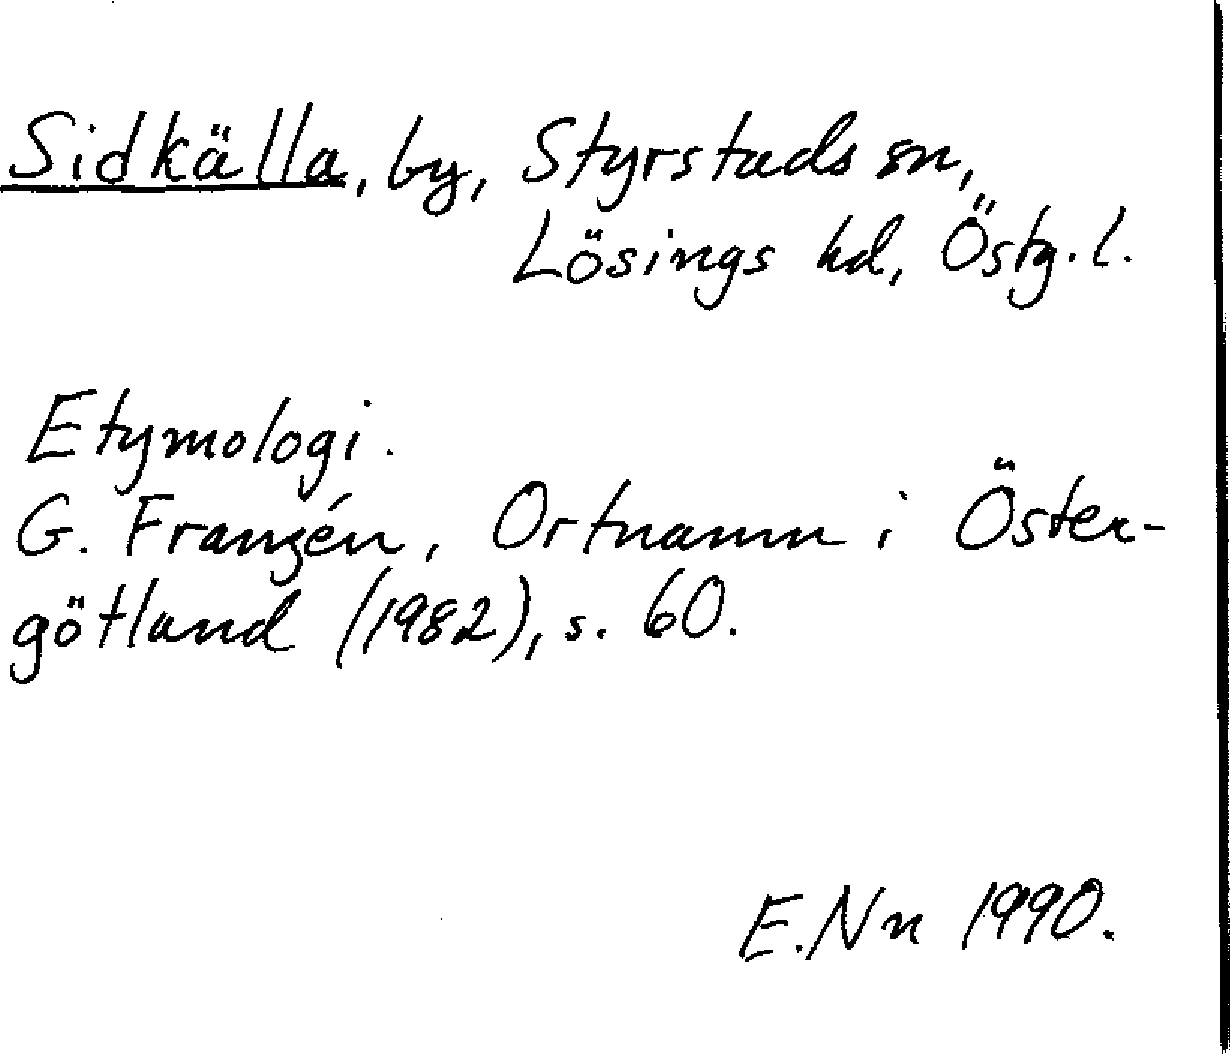 Sidkälla, by, Styrstads sn,
Lösings hd, Östg. l.
Etymologi.
G. Franzén, Ortnamn i Öster-
götland (1982), s. 60.
E.Nn 1990.